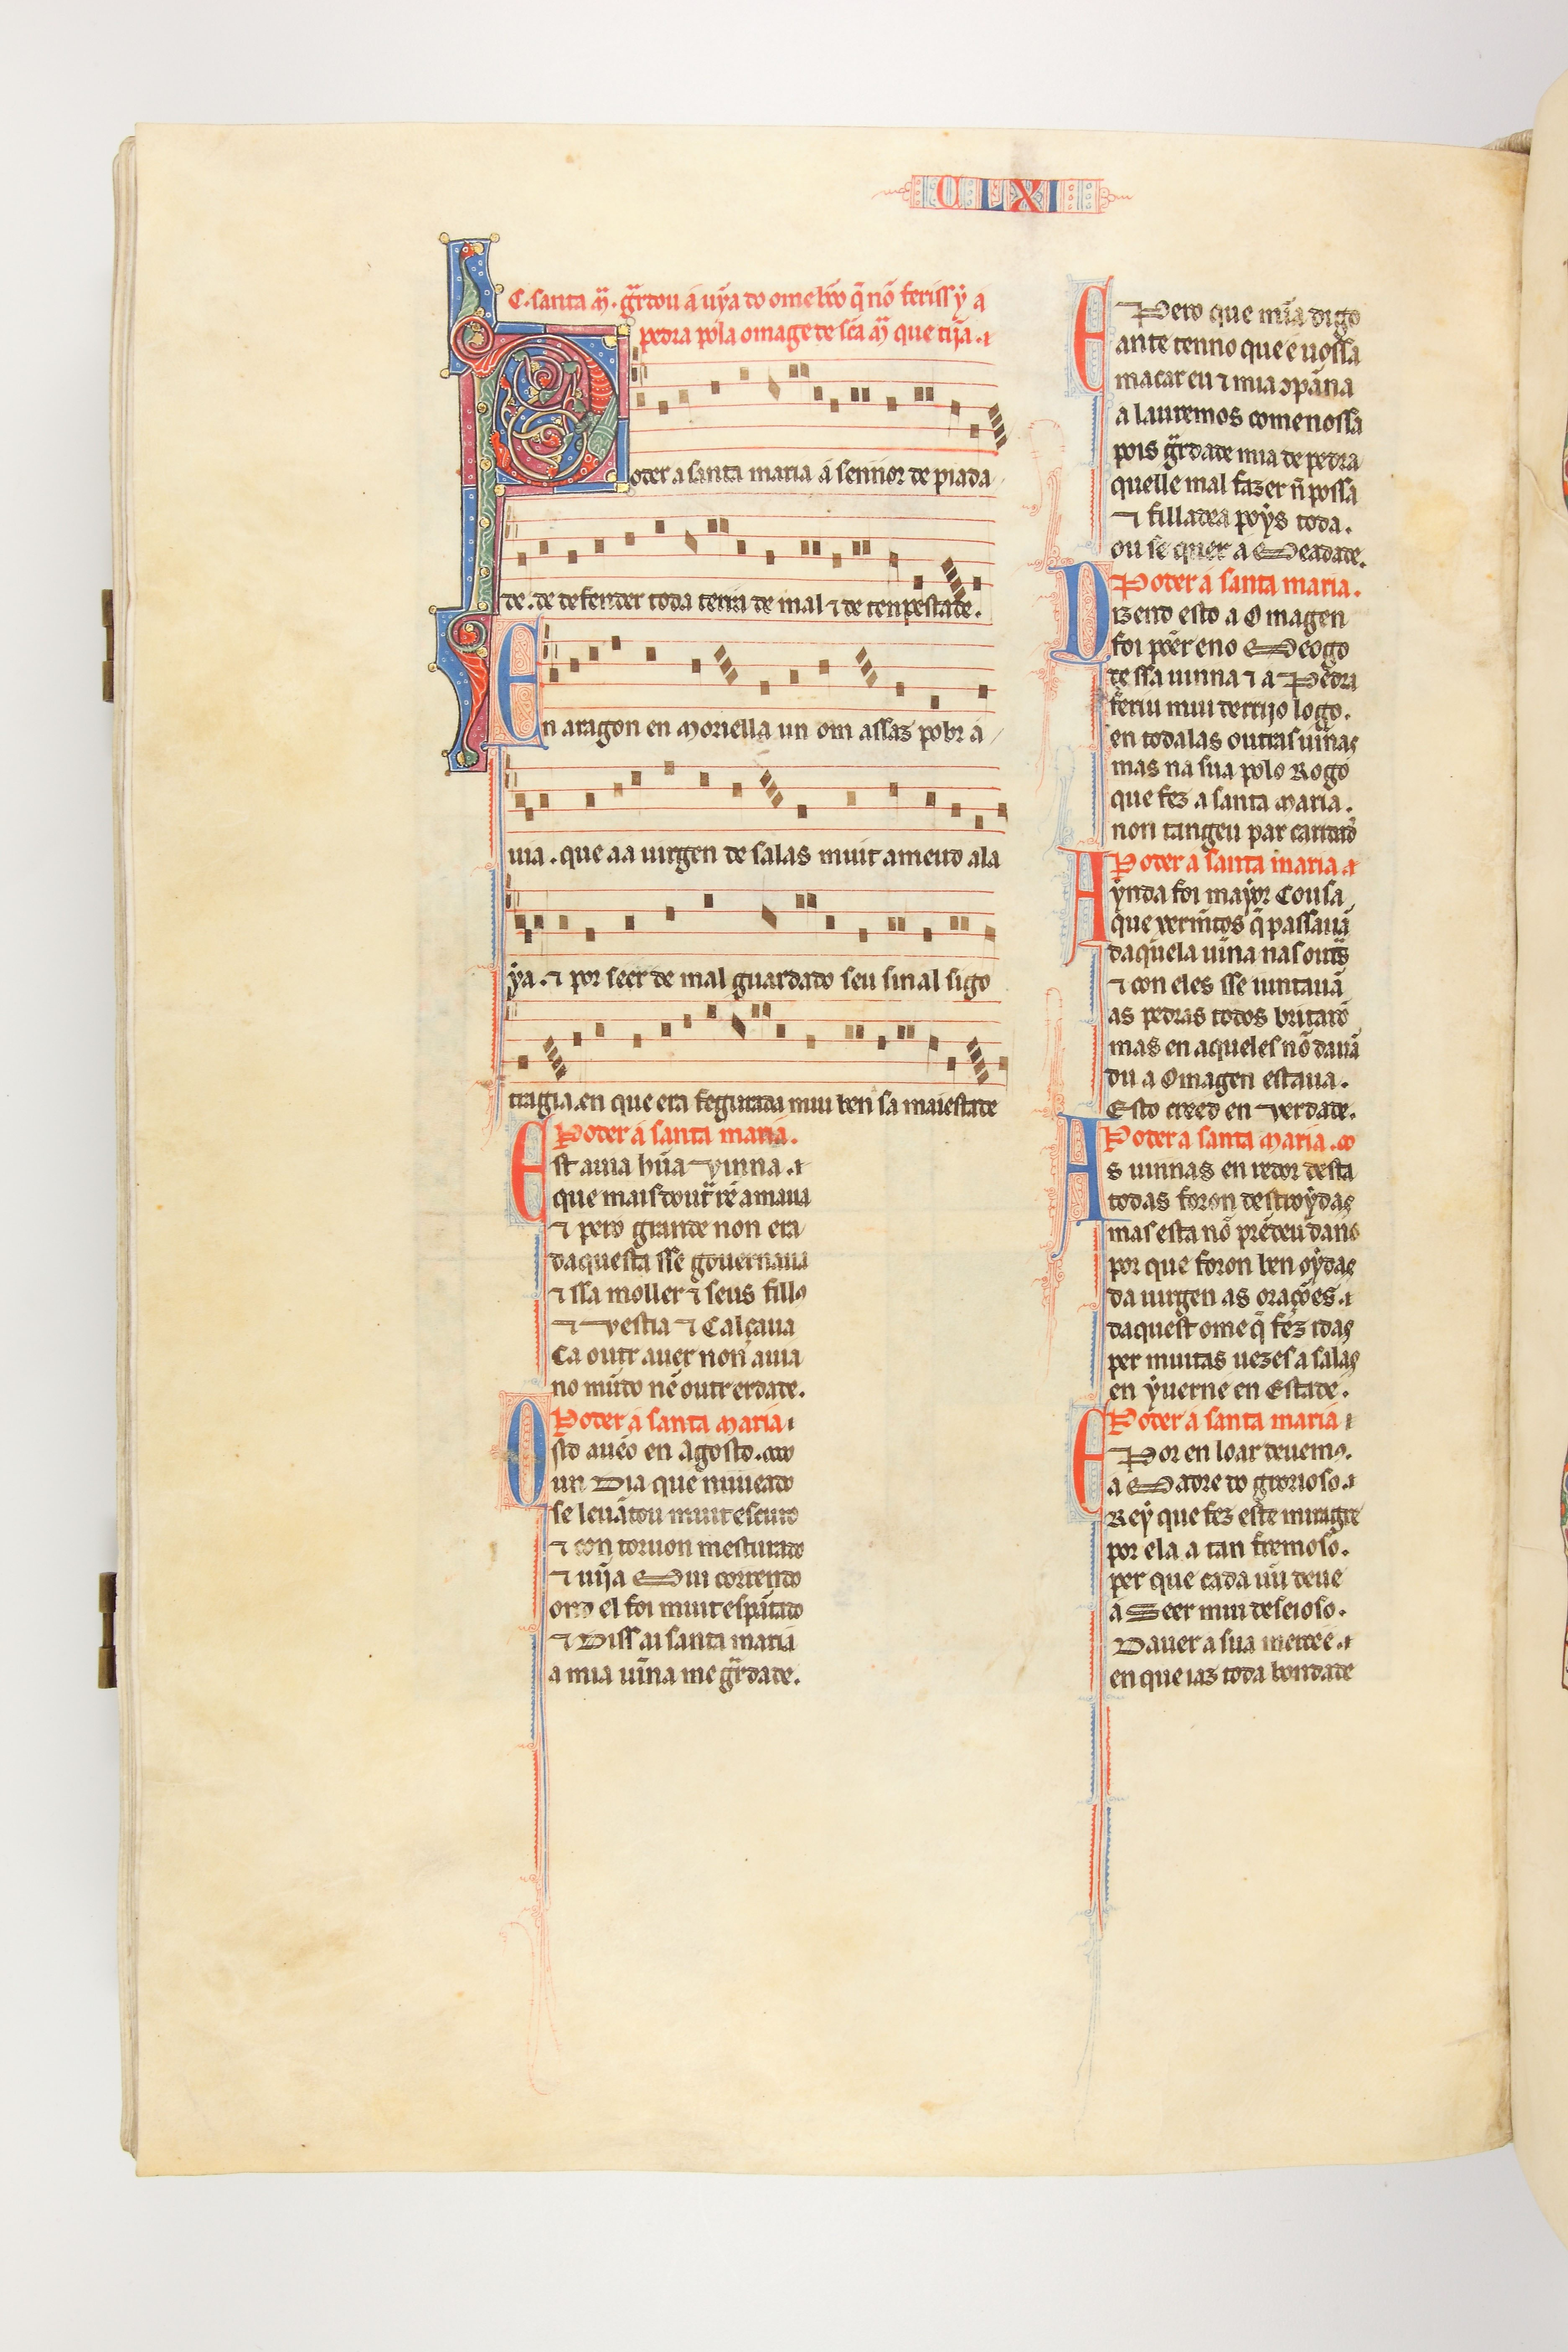 CLXI
C. santa m̃. gr̃dou a uỹa do ome bõo q̃ nõ feriss y a
pedra pola omage de sc̃a m̃ que tij̃a.
Poder a santa maria a sennor de piada
de. de defender toda terra de mal ⁊ de tenpestade.
En aragon en Moriella un om assaz pobr a
uia. que aa uirgen de salas muit ameud ala
ýa. ⁊ por seer de mal guardado seu sinal sigo
tragia. en que era fegurada mui ben sa maiestade
Poder a santa maria.
Est auia hũa vinna.
que mais dout̃ rẽ amaua
⁊ pero grande non era
daquesta sse gouernaua
⁊ ssa moller ⁊ seus fillos
⁊ vestia ⁊ Calçaua
Ca outr auer non auia
no mũdo nẽ outr erdade.
Poder a santa Maria
Osto auẽo en Agosto.
un Dia que nuueado
se leuãtou muit escuro
⁊ con toruon mesturado
⁊ uĩj̃a Mui correndo
ond el foi muit espãtado
⁊ Diss ai santa maria
a mia uĩna me gr̃dade.
E Pero que mĩa digo
ante tenno que e uossa
macar eu ⁊ mia ↄpãna
a lauremos come nossa
pois gr̃dade mia de pedra
quelle mal fazer ñ possa
⁊ filladea poýs toda.
ou se quer a Meadade.
Poder a santa maria.
Dizend esto a Omagen
foi põer eno Meogo
de ssa uinna ⁊ a Pedra
feriu mui de rrijo logo.
en todalas outras uiñas
mas na sua polo Rogo
que fez a santa Maria.
non tangeu par caridad
Poder a santa maria
Aýnda foi maýor Cousa
que vermẽos q̃ passauã
daquela uĩna nas outs̃
⁊ con eles sse iuntauã
as pedras todos britarõ
mas en aqueles nõ dauã
du a Omagen estaua.
Esto creed en verdade.
Poder a santa Maria.
As uinnas en redor desta
todas foron destroýdas
mas esta nõ prẽdeu dano
por que foron ben oýdas
da uirgen as orações.
daquest ome q̃ fez idas
per muitas uezes a salas
en ýuerne en Estade.
Poder a santa maria
E Por en loar deuemos.
a Madre do glorioso.
Reý que fez este miragre
por ela a tan fremoso.
per que cada uũ deue
a Seer mui deseioso.
Dauer a sua mercee.
en que iaz toda bondade